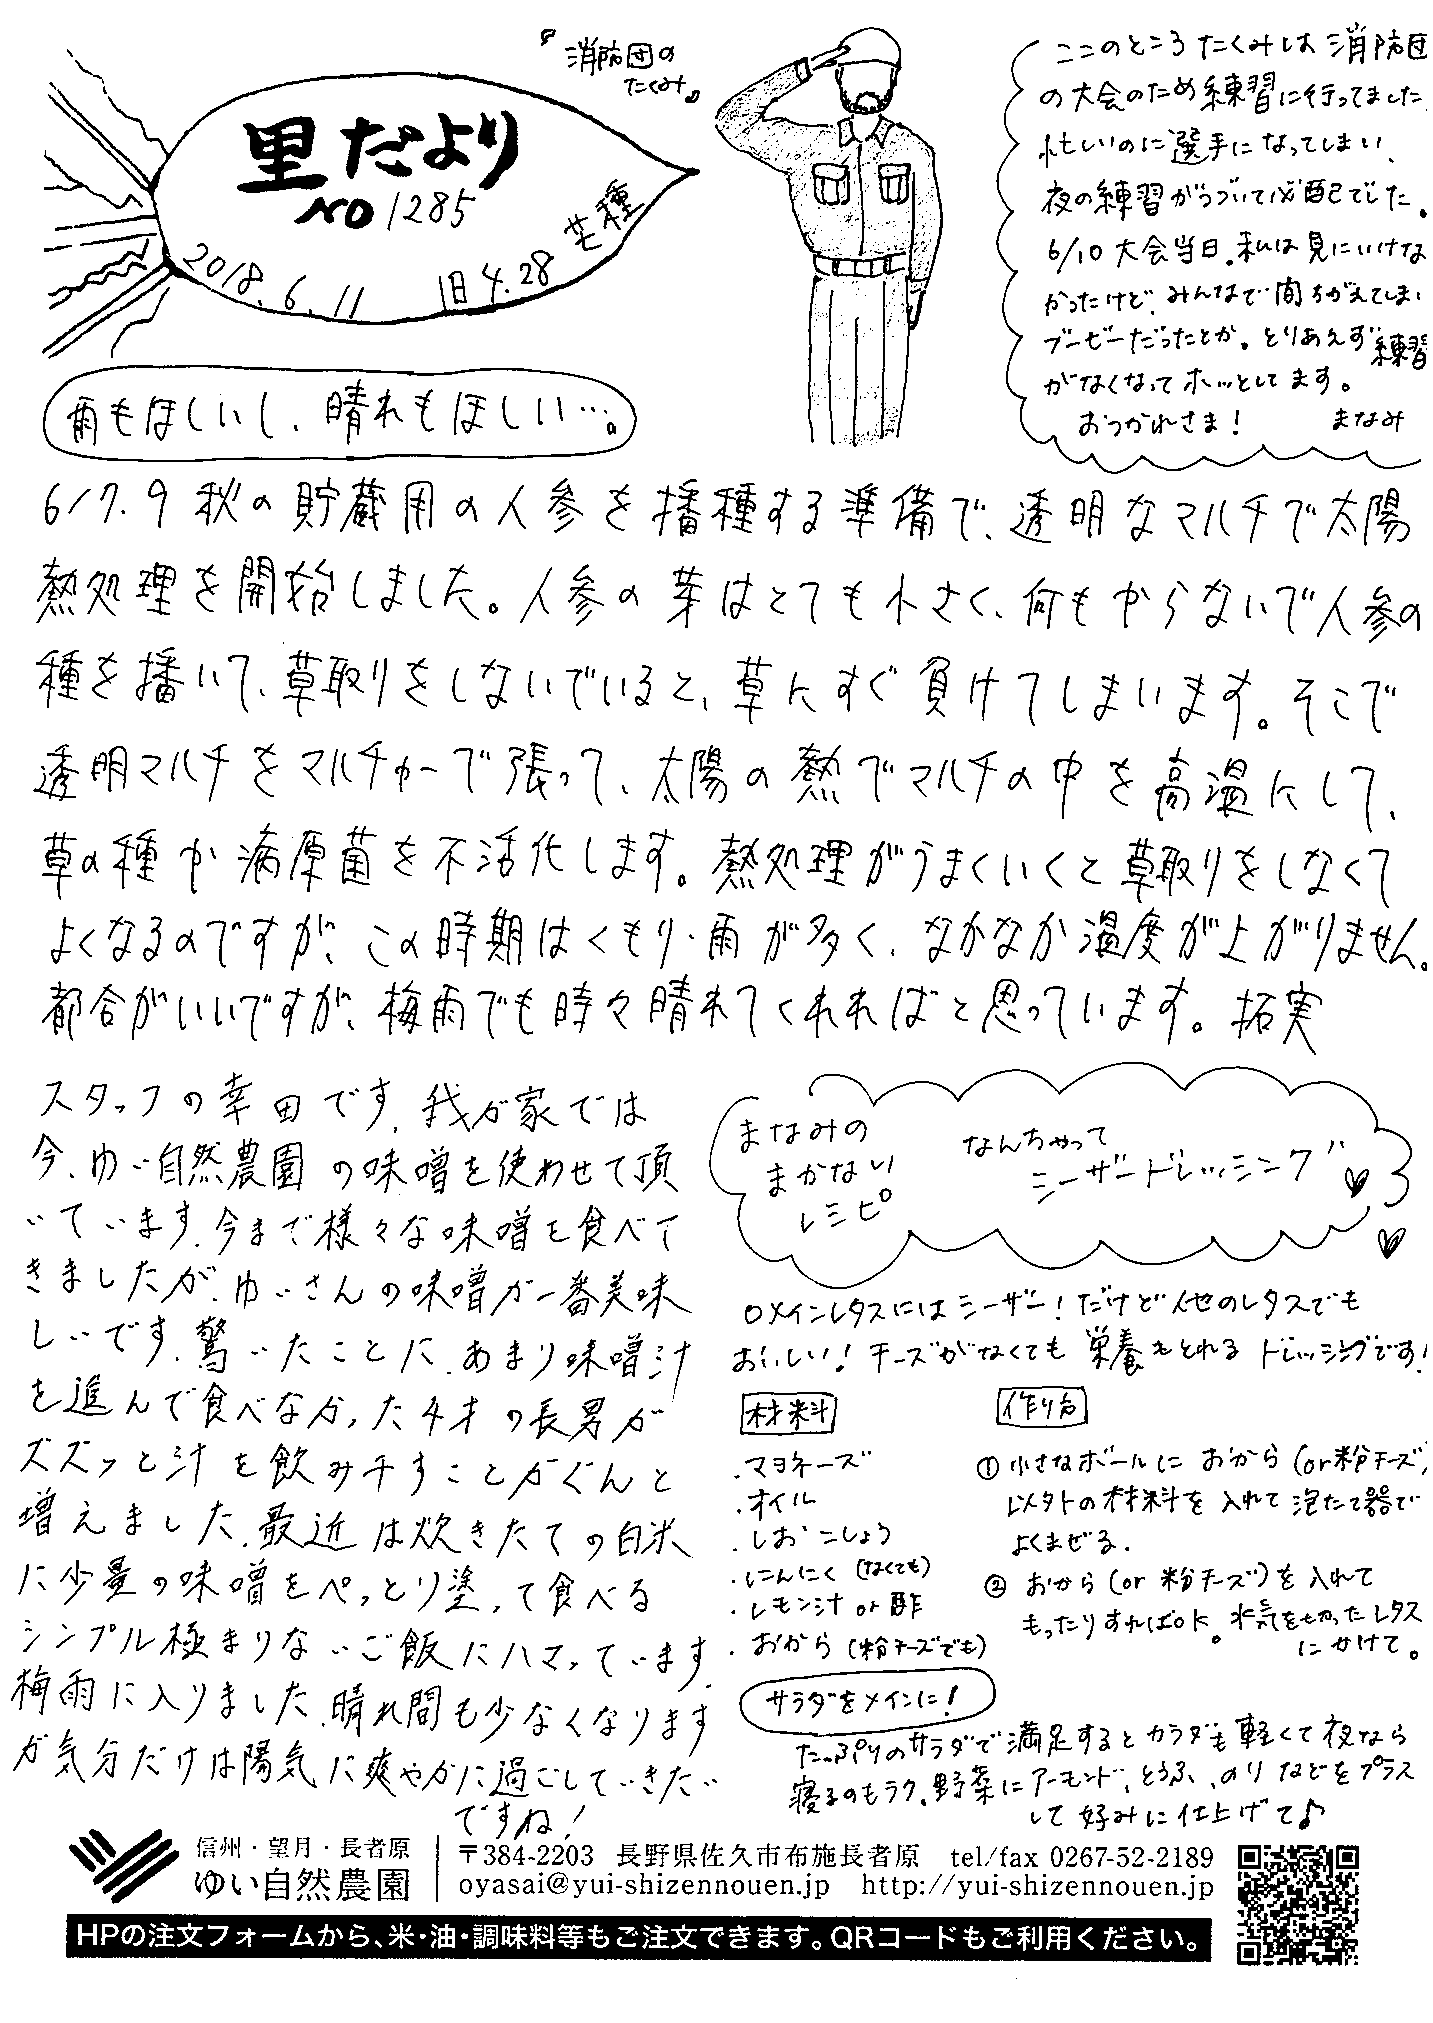 里だより
NO 1285
2018.6.11 旧4.28 芒種
『消防団の
たくみ』
ここのところ たくみは 消防団
の大会のため練習に行ってました。
忙しいのに選手になってしまい、
夜の練習がつづいて心配でした。
6/10 大会当日。私は見にいけな
かったけど、みんなで間ちがえてしまい
ブービーだったとか。とりあえず練習
がなくなってホッとしてます。
おつかれさま! まなみ
雨もほしいし、晴れもほしい…。
6/7.9 秋の貯蔵用の人参を播種する準備で、透明なマルチで太陽
熱処理を開始しました。人参の芽はとても小さく、何もやらないで人参の
種を播いて、草取りをしないでいると、草にすぐ負けてしまいます。そこで
透明マルチをマルチャーで張って、太陽の熱でマルチの中を高温にして、
草の種や病原菌を不活化します。熱処理がうまくいくと草取りをしなくて
よくなるのですが、この時期はくもり・雨が多く、なかなか温度が上がりません。
都合がいいですが、梅雨でも時々晴れてくれればと思っています。拓実
スタッフの幸田です。我が家では
今、ゆい自然農園の味噌を使わせて頂
いています。今まで様々な味噌を食べて
きましたが、ゆいさんの味噌が一番美味
しいです。驚いたことに、あまり味噌汁
を進んで食べなかった4才の長男が
ズズッと汁を飲み干すことがぐんと
増えました。最近は炊きたての白米
に少量の味噌をペっとり塗って食べる
シンプル極まりないご飯にハマっています。
梅雨に入りました。晴れ間も少なくなります
が気分だけは陽気に爽やかに過ごしていきたい
ですね!
まなみの
まかない
レシピ
なんちゃって
シーザードレッシング
ロメインレタスにはシーザー!だけど他のレタスでも
おいしい! チーズがなくても 栄養もとれる ドレッシングです!
材料
・マヨネーズ
・オイル
・しお こしょう
・にんにく (なくても)
・レモン汁 or 酢
・おから (粉チーズでも)
作り方
① 小さなボールに おから (or 粉チーズ)
以外の材料を 入れて 泡たて器で
よくまぜる。
② おから (or 粉チーズ)を 入れて
もったりすればOK。水気をもったレタス
にかけて。
サラダをメインに!
たっぷりのサラダで満足するとカラダも軽くて夜なら
寝るのもラク。野菜にアーモンド、とうふ、のりなどをプラス
して 好みに 仕上げて♪
信州・望月・長者原
ゆい自然農園
〒384-2203 長野県佐久市布施長者原 tel/fax 0267-52-2189
oyasai@yui-shizennouen.jp http://yui-shizennouen.jp
HPの注文フォームから、米・油・調味料等もご注文できます。QRコードもご利用ください。